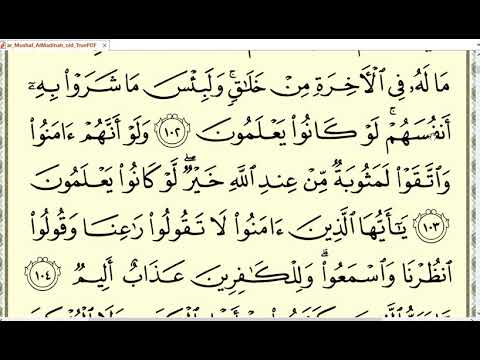 ar_Mushaf_AlMadinah_old_TruePDF
مَا لَهُۥ فِي ٱلْأَخِرَةِ مِنْ خَلَٰقٍۚ وَلَبِئْسَ مَا شَرَوْا۟ بِهِۦٓ
أَنفُسَهُمْۚ لَوْ كَانُوا۟ يَعْلَمُونَ ١٠٢ وَلَوْ أَنَّهُمْ ءَامَنُوا۟
وَٱتَّقَوْا۟ لَمَثُوبَةٌ مِّنْ عِندِ ٱللَّهِ خَيْرٌۖ لَّوْ كَانُوا۟ يَعْلَمُونَ
١٠٣ يَٰٓأَيُّهَا ٱلَّذِينَ ءَامَنُوا۟ لَا تَقُولُوا۟ رَٰعِنَا وَقُولُوا۟
ٱنظُرْنَا وَٱسْمَعُوا۟ۗ وَلِلْكَٰفِرِينَ عَذَابٌ أَلِيمٌ ١٠٤